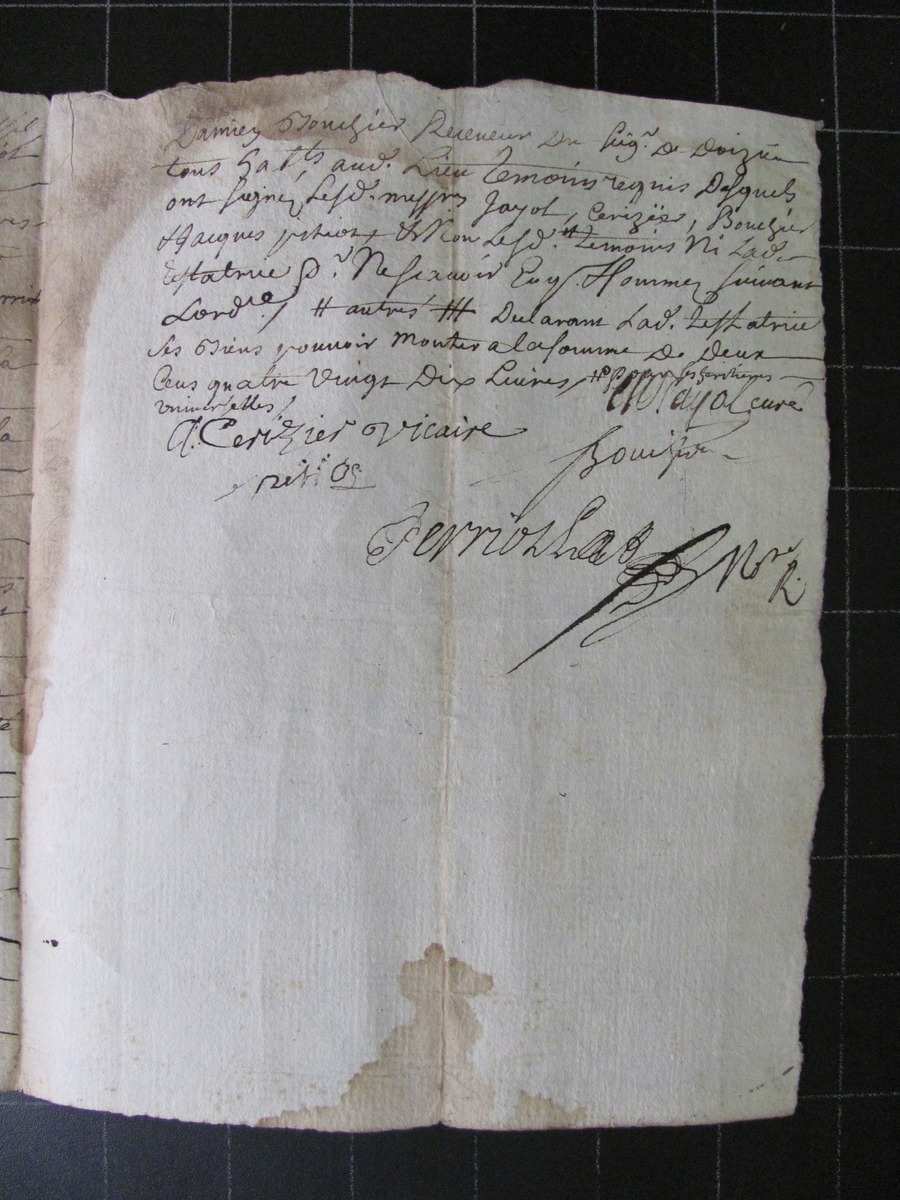 Damien Bouchier Receveur Du Seigr. De Doizieu
tous habts. aud. Lieu temoins requis Desquels
ont signez Lesd. messres Jayol, Cerizier, Bouchier
& Jacques & Non Lesd. # temoins Ni Lad.
testatrice Pr. Nescavoir Enq. & Sommez suivant
Lordce. / # autres ## Declarant Lad. testatrice
ses Biens pouvoir monter a la somme De Deux
Cens quatre Vingt Dix Livres, pour ses heritieres
universelles /
Jayol curé
A. Cerizier Vicaire
Bouchier
Nore
R.